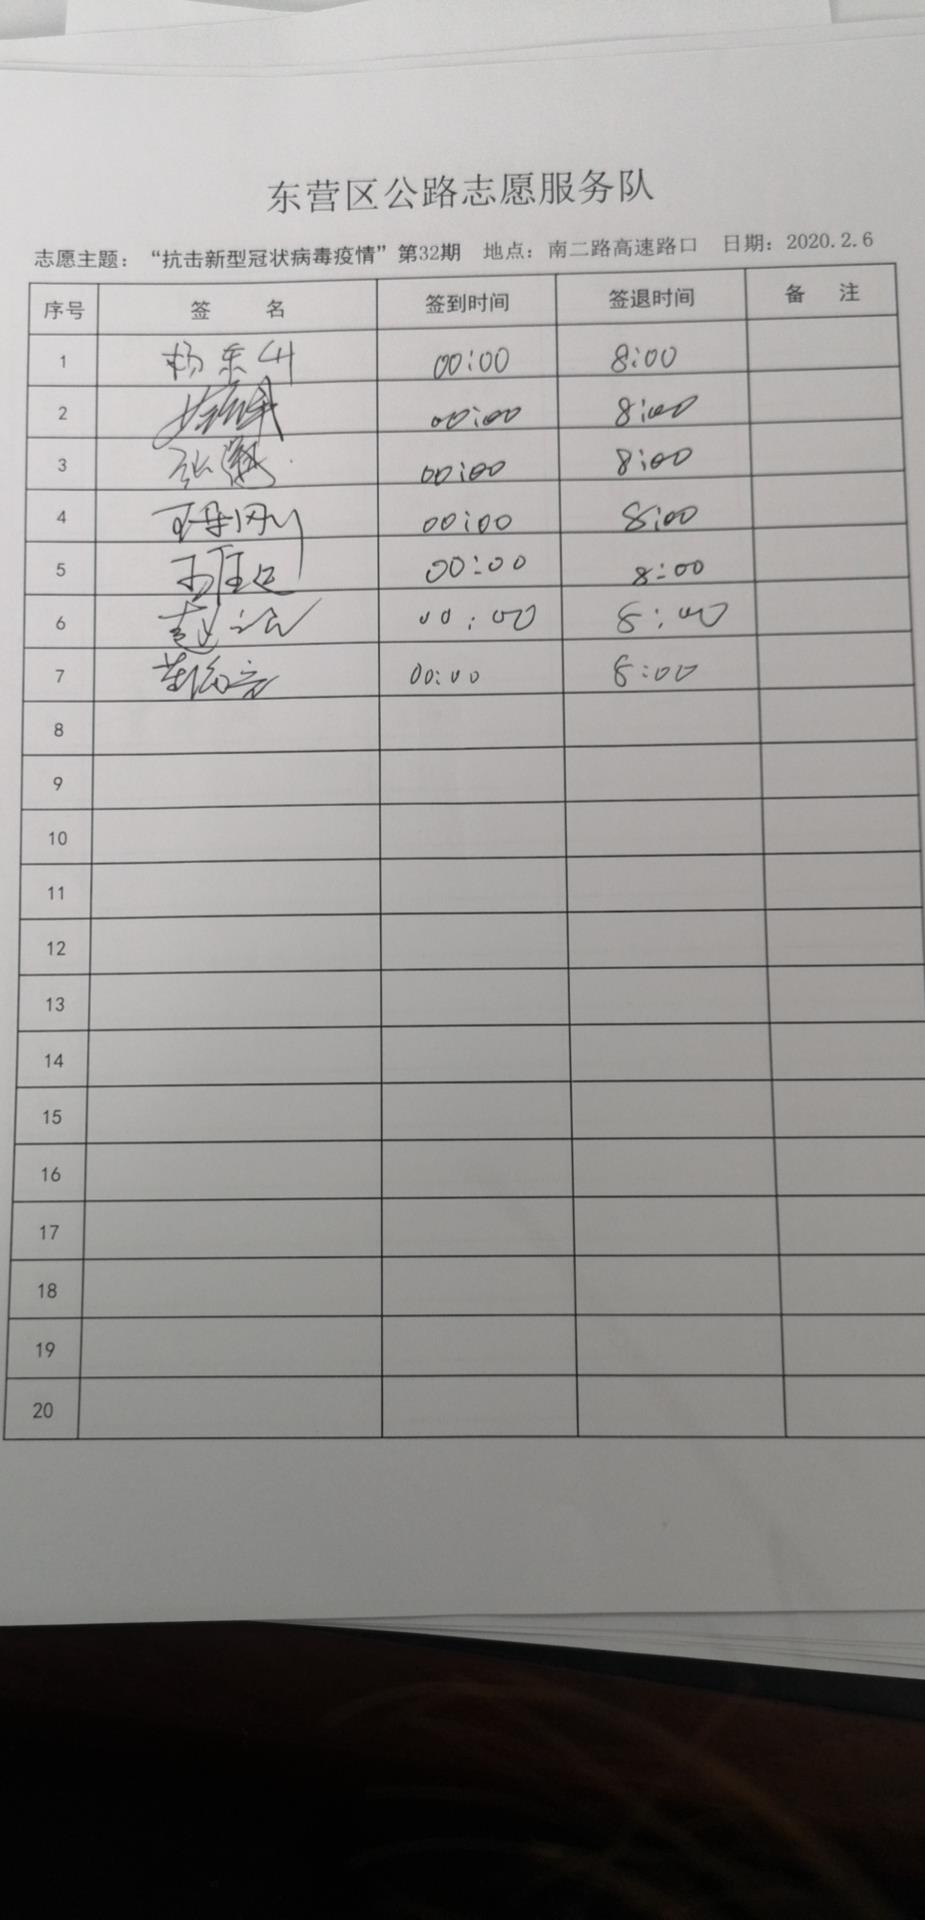 东营区公路志愿服务队
志愿主题：“抗击新型冠状病毒疫情”第32期 地点：南二路高速路口 日期：2020.2.6
序号 签 名 签到时间 签退时间 备 注
1 杨东 00:00 8:00
2 00:00 8:00
3 张 00:00 8:00
4 00:00 8:00
5 00:00 8:00
6 赵 00:00 8:00
7 00:00 8:00
8
9
10
11
12
13
14
15
16
17
18
19
20